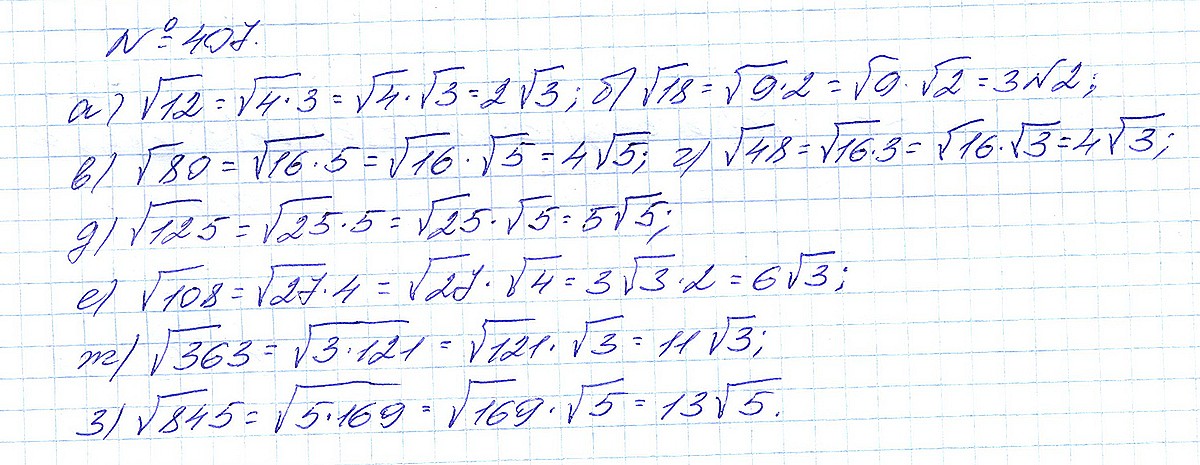 № 407.
а) √12 = √4·3 = √4·√3 = 2√3; б) √18 = √9·2 = √9·√2 = 3√2;
в) √80 = √16·5 = √16·√5 = 4√5; г) √48 = √16·3 = √16·√3 = 4√3;
д) √125 = √25·5 = √25·√5 = 5√5;
е) √108 = √27·4 = √27·√4 = 3√3·2 = 6√3;
ж) √363 = √3·121 = √121·√3 = 11√3;
з) √845 = √5·169 = √169·√5 = 13√5.